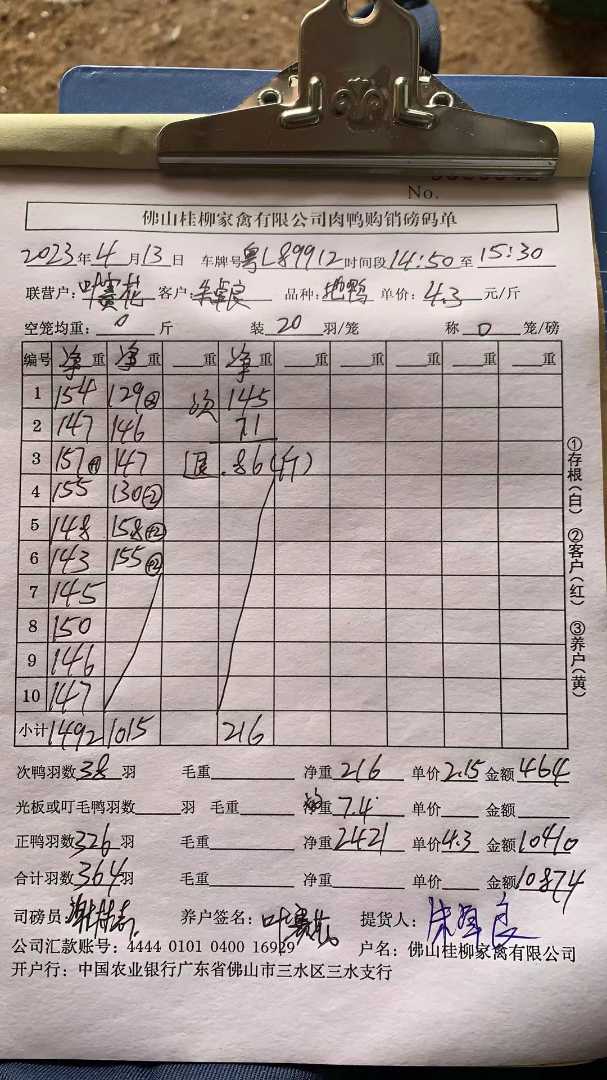 No.
佛山桂柳家禽有限公司肉鸭购销磅码单
2023年4月13日 车牌号粤L89912时间段14:50至15:30
联营户: 客户: 品种:地鸭 单价:4.3元/斤
空笼均重:0斤 装20羽/笼 称0笼/磅
编号 净重 净重 重 净重 重 重 重 重 重
1 154 129 次 145
2 147 146 71
3 157 147 86(斤)
4 155 130
5 148 158
6 143 155
7 145
8 150
9 146
10 147
小计 1492 1015 216
①存根(白) ②客户(红) ③养户(黄)
次鸭羽数38羽 毛重 净重216 单价2.15 金额464
光板或叮毛鸭羽数 羽 毛重 净重7.4 单价 金额
正鸭羽数326羽 毛重 净重2421 单价4.3 金额10410
合计羽数364羽 毛重 净重 单价 金额10874
司磅员: 养户签名: 提货人:
公司汇款账号:4444 0101 0400 16929 户名:佛山桂柳家禽有限公司
开户行:中国农业银行广东省佛山市三水区三水支行